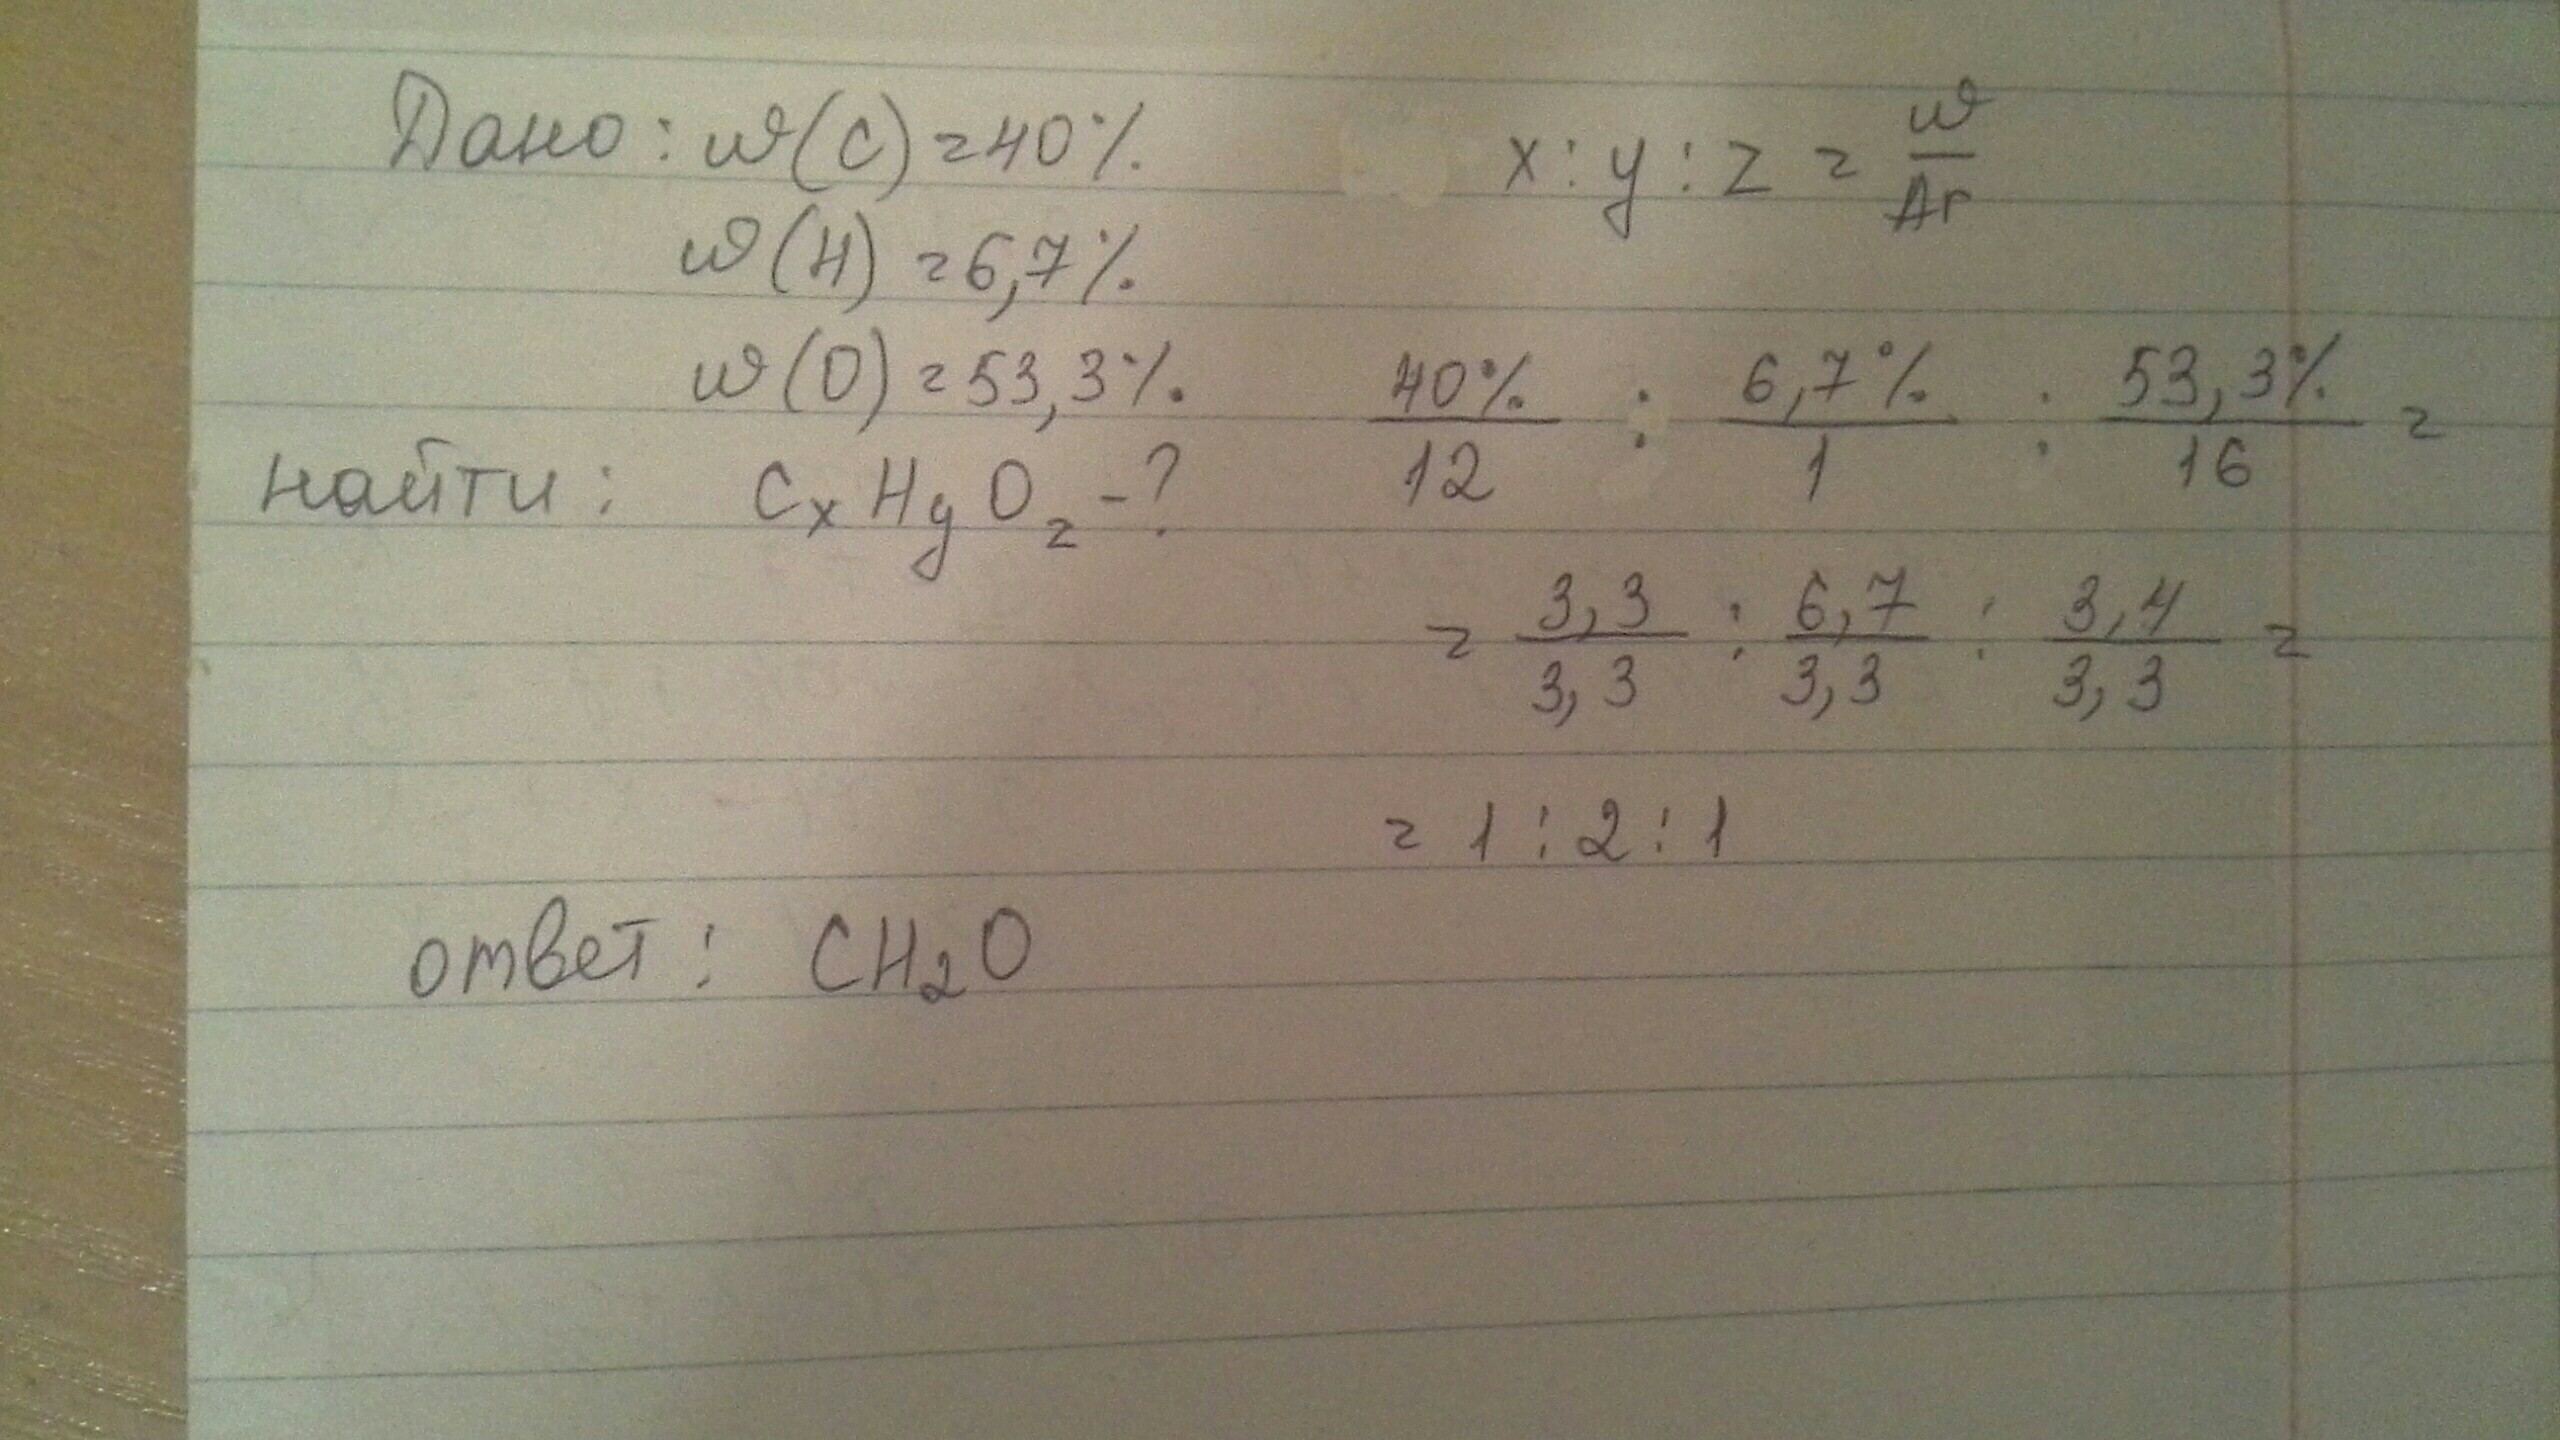 Дано: w(C)=40%
w(H)=6,7%
w(O)=53,3%
найти: CxHyOz-?
x:y:z=w/Ar
40%/12 : 6,7%/1 : 53,3%/16 =
= 3,3/3,3 : 6,7/3,3 : 3,4/3,3 =
= 1:2:1
ответ: CH₂O